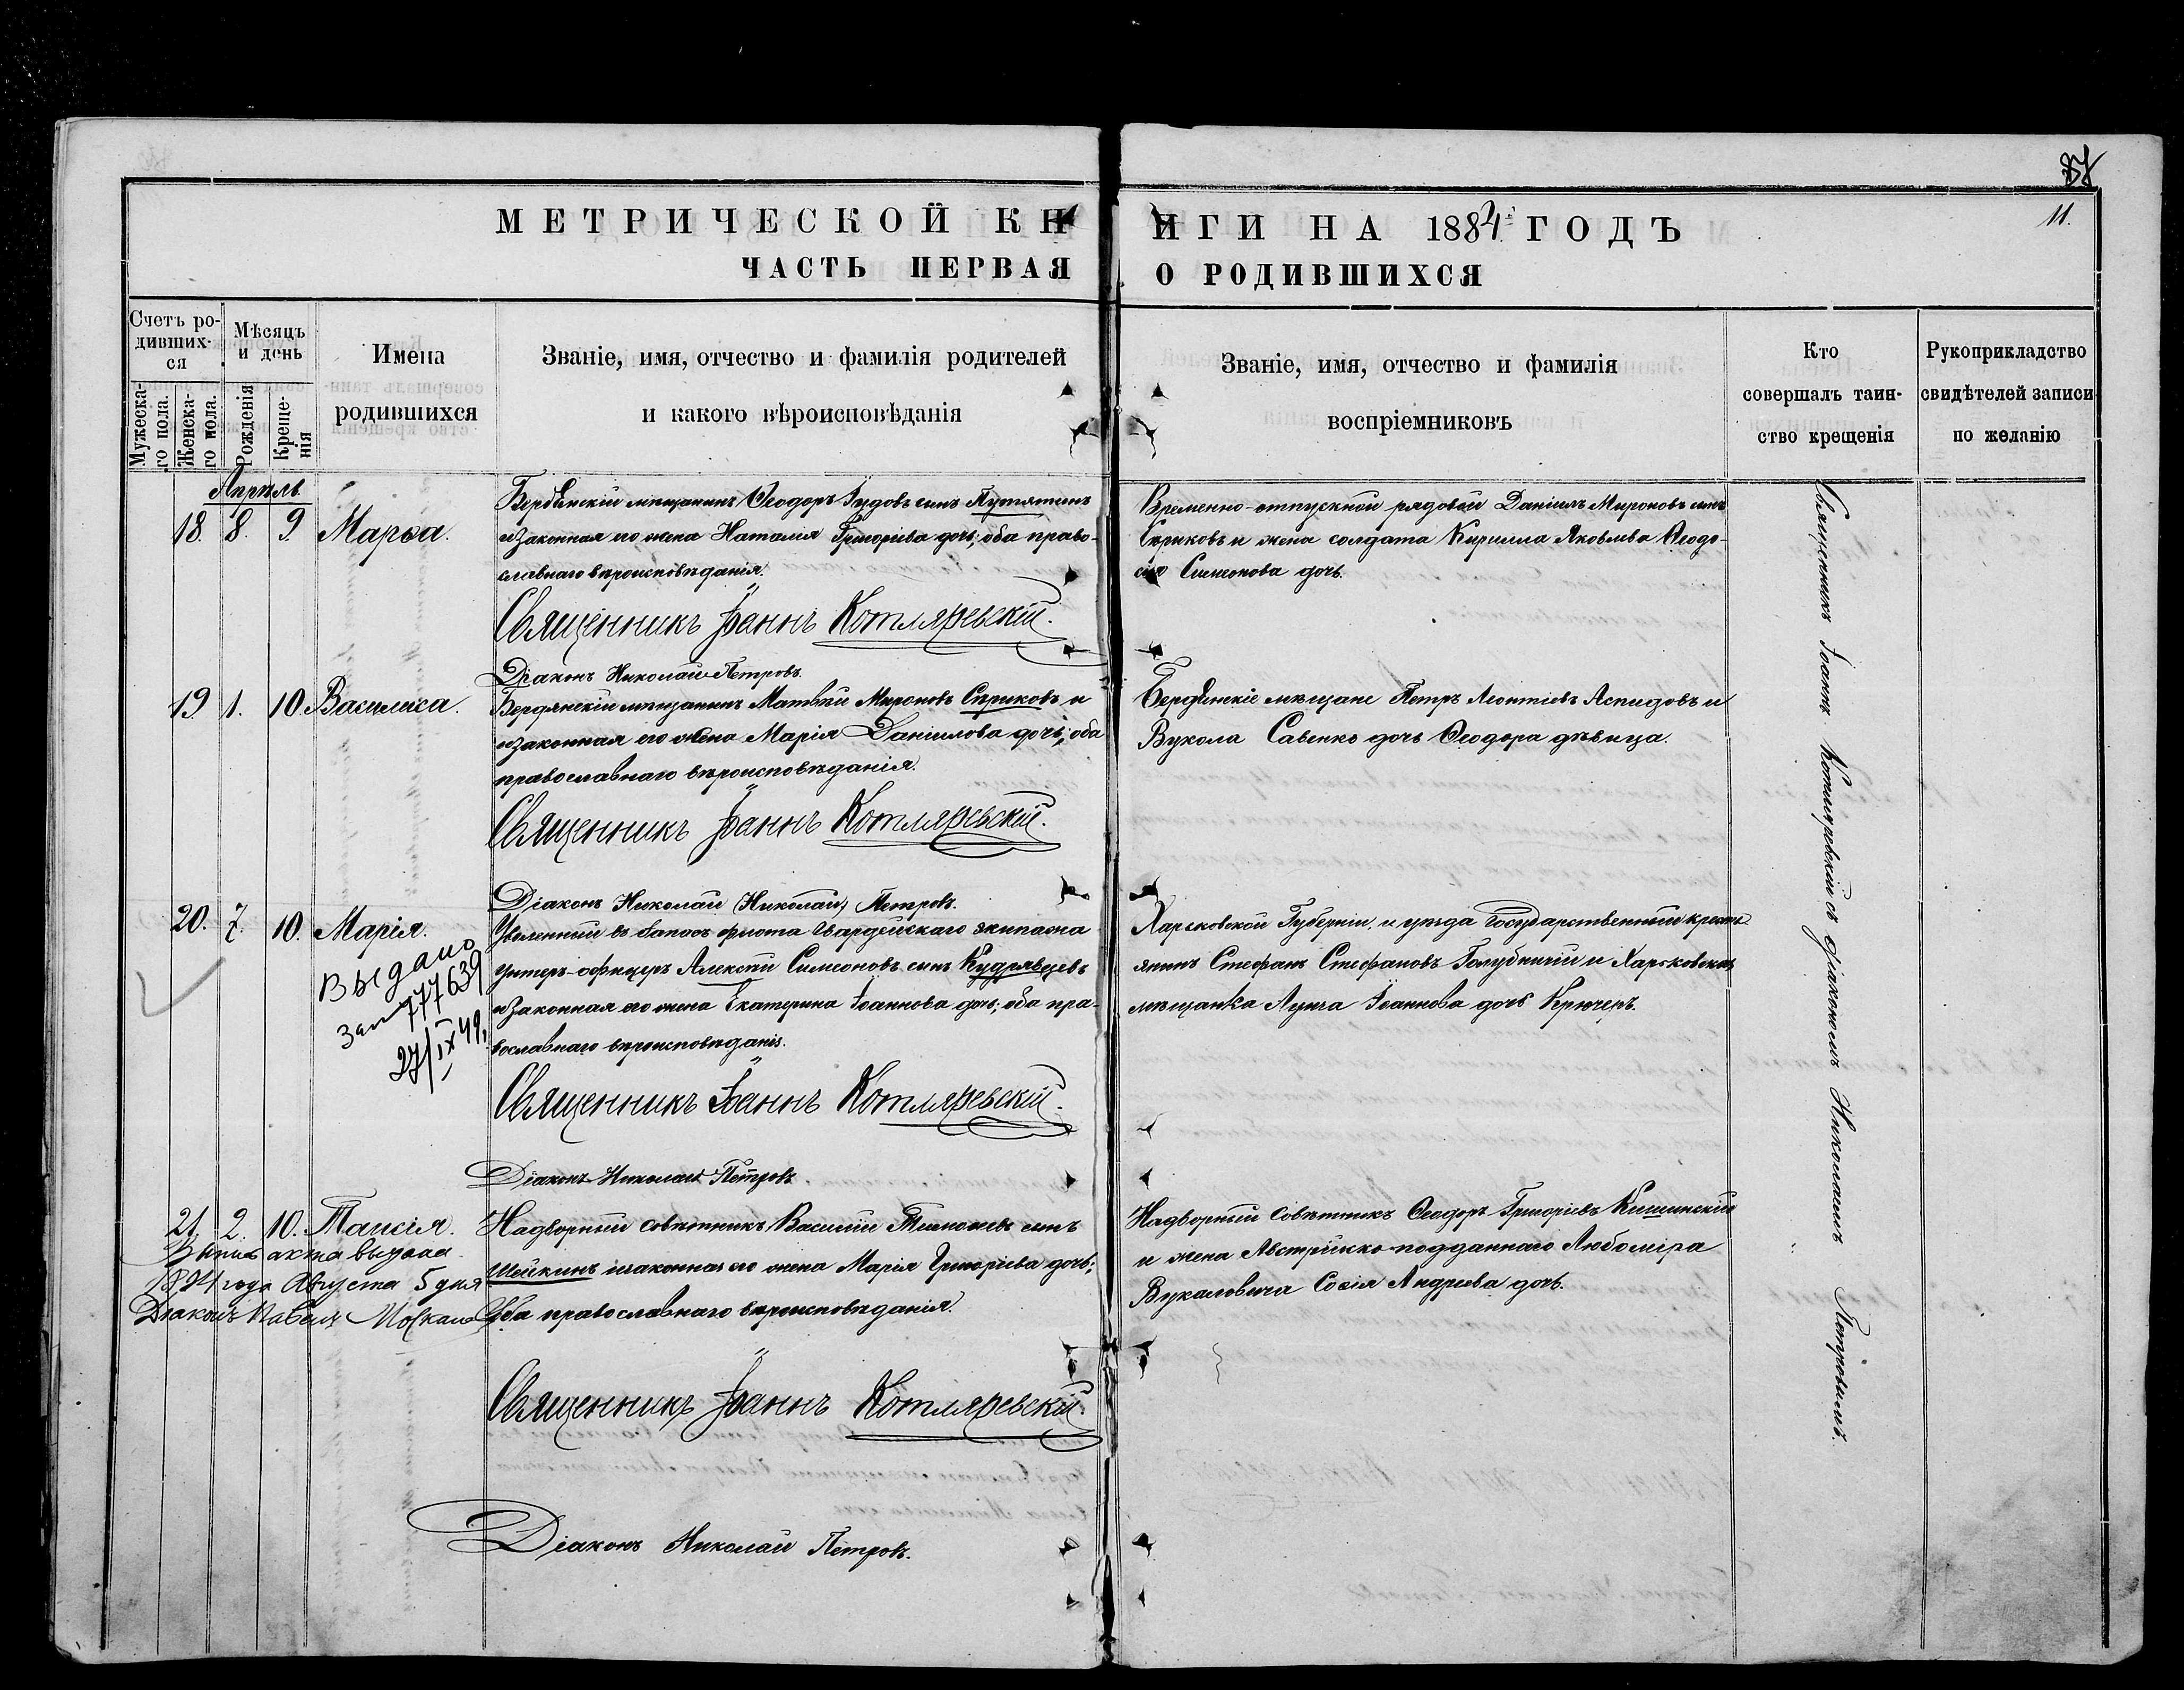 11.
МЕТРИЧЕСКОЙ КНИГИ НА 1884 ГОДЪ
ЧАСТЬ ПЕРВАЯ О РОДИВШИХСЯ
Счетъ родившихся
Мужеска-го пола.
Женска-го пола.
Мѣсяцъ и день
Рожденія
Креще-нія
Имена
родившихся
Званіе, имя, отчество и фамилія родителей
и какого вѣроисповѣданія
Званіе, имя, отчество и фамилія
воспріемниковъ
Кто
совершалъ таин-
ство крещенія
Рукоприкладство
свидѣтелей записи
по желанію
Апрѣль
18. 8. 9. Марѳа.
Бердянскій мѣщанинъ Ѳеодоръ сынъ Путятинъ
и законная его жена Наталія Григоріева дочь; оба право-
славнаго вѣроисповѣданія.
Священникъ Іоаннъ Котляревскій.
Діаконъ Николай Петровъ.
Временно-отпускной рядовой Даніилъ Мироновъ сынъ
и жена солдата Кирилла Яковлева Ѳеодо-
сія Симеонова дочь.
19. 1. 10. Василиса.
Бердянскій мѣщанинъ Матвѣй Мироновъ и
законная его жена Марія Даніилова дочь; оба
православнаго вѣроисповѣданія.
Священникъ Іоаннъ Котляревскій.
Діаконъ Николай (Николай) Петровъ.
Бердянскіе мѣщане Петръ Леонтіевъ Аспидовъ и
Вукола Савенко дочь Ѳеодора дѣвица.
20. 7. 10. Марія.
Выдано
777639
27/IX 49.
Уволенный въ запасъ флота Гвардейскаго экипажа
унтеръ-офицеръ Алексѣй Симеоновъ сынъ Кудрявцевъ
и законная его жена Екатерина Іоаннова дочь; оба пра-
вославнаго вѣроисповѣданія.
Священникъ Іоаннъ Котляревскій.
Діаконъ Николай Петровъ
Харьковской Губерніи, и уѣзда Государственный кресть-
янинъ Стефанъ Стефановъ Голубничій и Харьковская
мѣщанка Іоаннова дочь
21. 2. 10. Таисія.
акта выдана
1894 года Августа 5 дня
Діаконъ Павелъ
Надворный Совѣтникъ Василій сынъ
Шейкинъ и законная его жена Марія Григоріева дочь;
Оба православнаго вѣроисповѣданія.
Священникъ Іоаннъ Котляревскій.
Діаконъ Николай Петровъ.
Надворный Совѣтникъ Ѳеодоръ Григоріевъ Кишинскій
и жена Австрійско-подданнаго Любоміра
Вукаловича Софія Андреева дочь.
Священникъ Іоаннъ Котляревскій съ діакономъ Николаемъ Петровымъ.